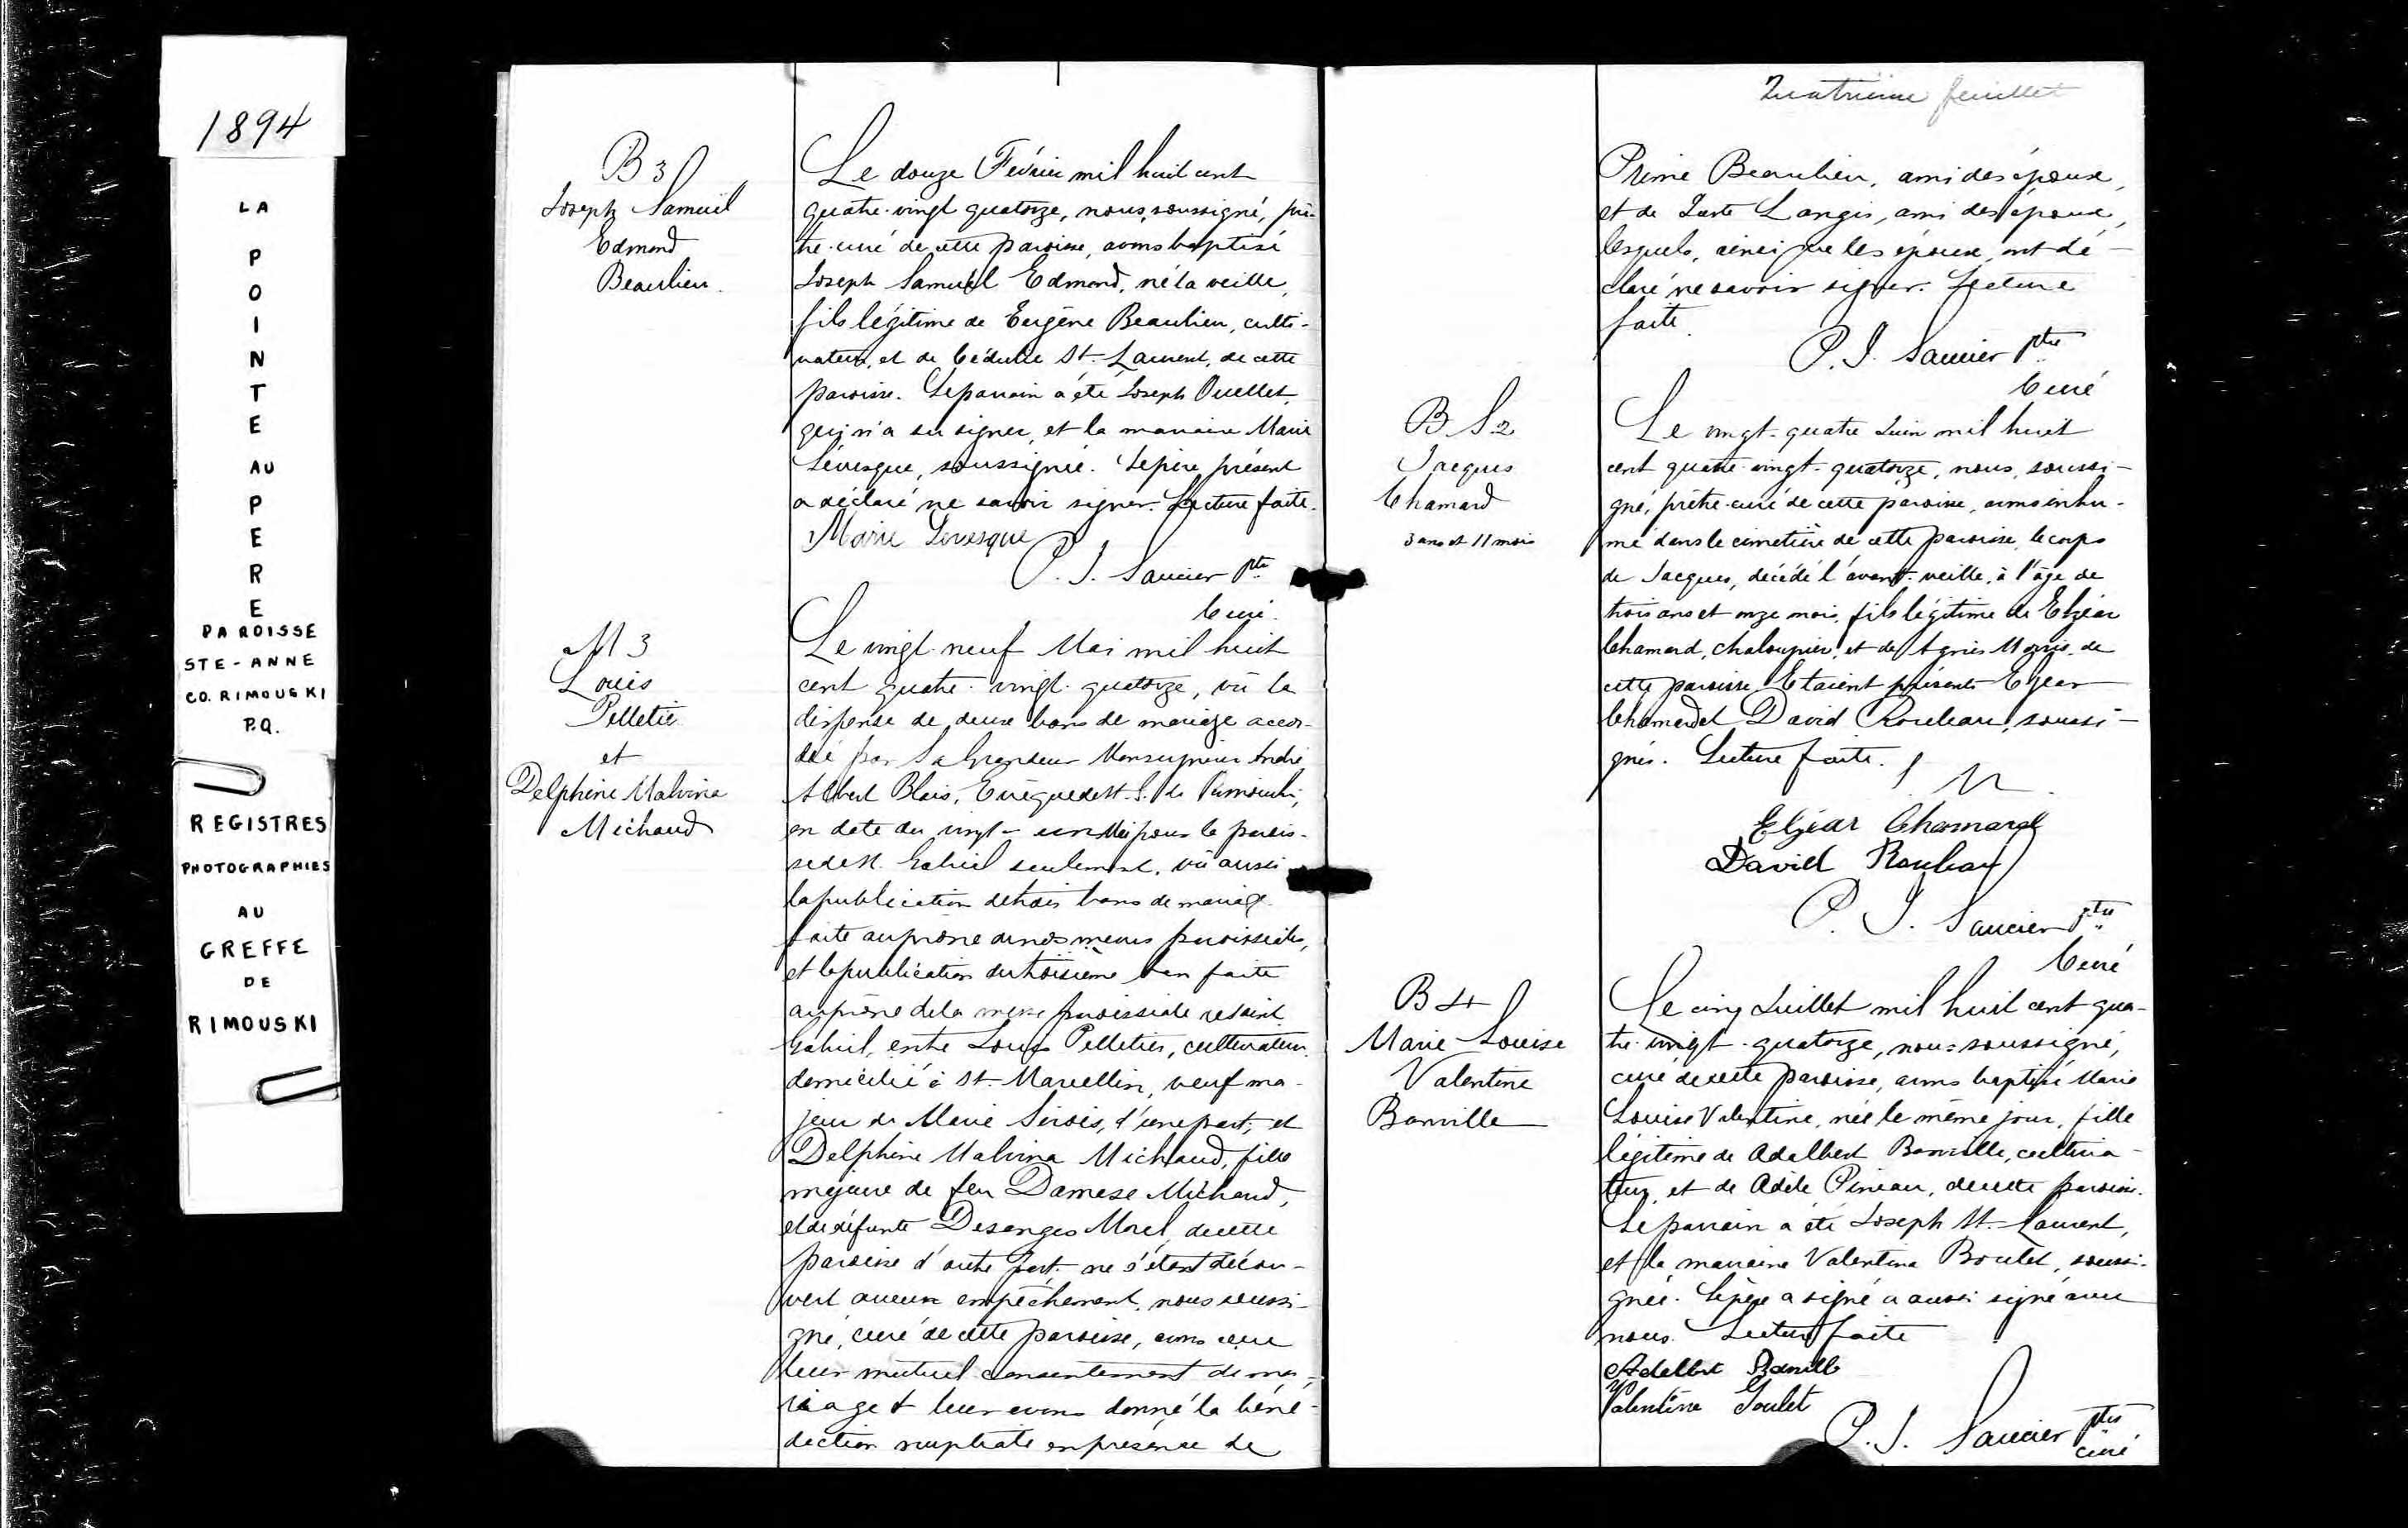 1894
LA
POINTE
AU
PERE
PAROISSE
STE-ANNE
CO. RIMOUSKI
P.Q.
REGISTRES
PHOTOGRAPHIES
AU
GREFFE
DE
RIMOUSKI
B 3
Joseph Samuel
Edmond
Beaulieu.
Le douze Février mil huit cent
quatre-vingt quatorze, nous, soussigné, prê-
tre-curé de cette paroisse, avons baptisé
Joseph Samuel Edmond, né la veille,
fils légitime de Eugène Beaulieu, culti-
vateur, et de Cédulie St-Laurent, de cette
paroisse. Le parrain a été Joseph Ouellet,
qui n'a su signer, et la marraine Marie
Lévesque, soussignée. Le père présent
a déclaré ne savoir signer. Lecture faite.
Marie Levesque
P. J. Saucier Ptre
Curé.
M 3
Louis
Pelletier
et
Delphine Malvina
Michaud
Le vingt-neuf Mai mil huit
cent quatre-vingt-quatorze, vu la
dispense de deux bans de mariage accor-
dée par Sa Grandeur Monseigneur André
Albert Blais, Evêque de St. G. de Rimouski,
en date du vingt-un Mai pour la parois-
se de St. Gabriel seulement, vu aussi
la publication de trois bans de mariage
faite au prône de nos messes paroissiales,
et la publication du troisième ban faite
au prône de la messe paroissiale de Saint
Gabriel, entre Louis Pelletier, cultivateur,
domicilié à St-Marcellin, veuf ma-
jeur de Marie Sirois, d'une part; et
Delphine Malvina Michaud, fille
majeure de feu Damase Michaud,
et de défunte Desanges Morel, de cette
paroisse d'autre part; ne s'étant décou-
vert aucun empêchement, nous soussi-
gné, curé de cette paroisse, avons reçu
leur mutuel consentement de ma-
riage et leur avons donné la béné-
diction nuptiale en présence de
Quatrième feuillet
Prime Beaulieu, ami des époux,
et de Juste Langis, ami des époux,
lesquels, ainsi que les époux, ont dé-
claré ne savoir signer. Lecture
faite.
P. J. Saucier Ptre
Curé
B S 2
Jacques
Chamard
3 ans et 11 mois
Le vingt-quatre Juin mil huit
cent quatre-vingt-quatorze, nous, soussi-
gné, prêtre-curé de cette paroisse, avons inhu-
mé dans le cimetière de cette paroisse, le corps
de Jacques, décédé l'avant-veille, à l'âge de
trois ans et onze mois, fils légitime de Elzéar
Chamard, chaloupier, et de Agnès Morris, de
cette paroisse. Etaient présents Elzéar
Chamard et David Rouleau, soussi-
gnés. Lecture faite.
Elzéar Chamard
David Rouleau
P. J. Saucier Ptre
Curé
B 4
Marie Louise
Valentine
Banville
Le cinq Juillet mil huit cent qua-
tre-vingt-quatorze, nous soussigné,
curé de cette paroisse, avons baptisé Marie
Louise Valentine, née le même jour, fille
légitime de Adalbert Banville, cultiva-
teur, et de Adèle Pineau, de cette paroisse.
Le parrain a été Joseph St-Laurent,
et la marraine Valentine Boulet, soussi-
gnée. Le père a signé a aussi signé avec
nous. Lecture faite
Adalbert Banville
Valentine Goulet
P. J. Saucier Ptre
curé